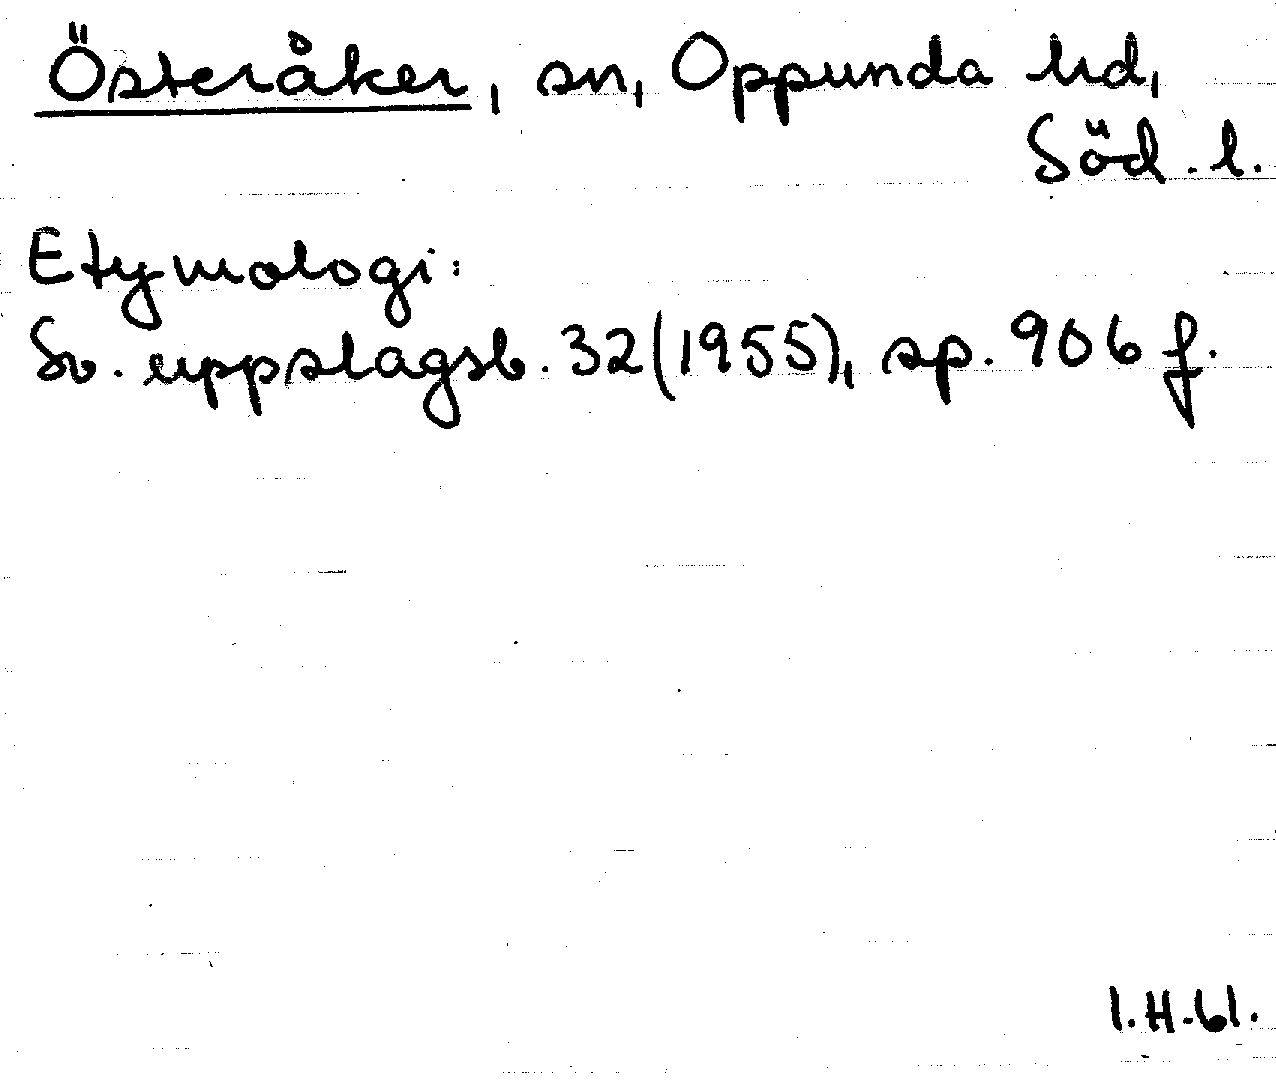 Österåker, sn, Oppunda hd,
Söd. l.
Etymologi:
Sv. uppslagsb. 32(1955), sp. 906 f.
I.H-61.